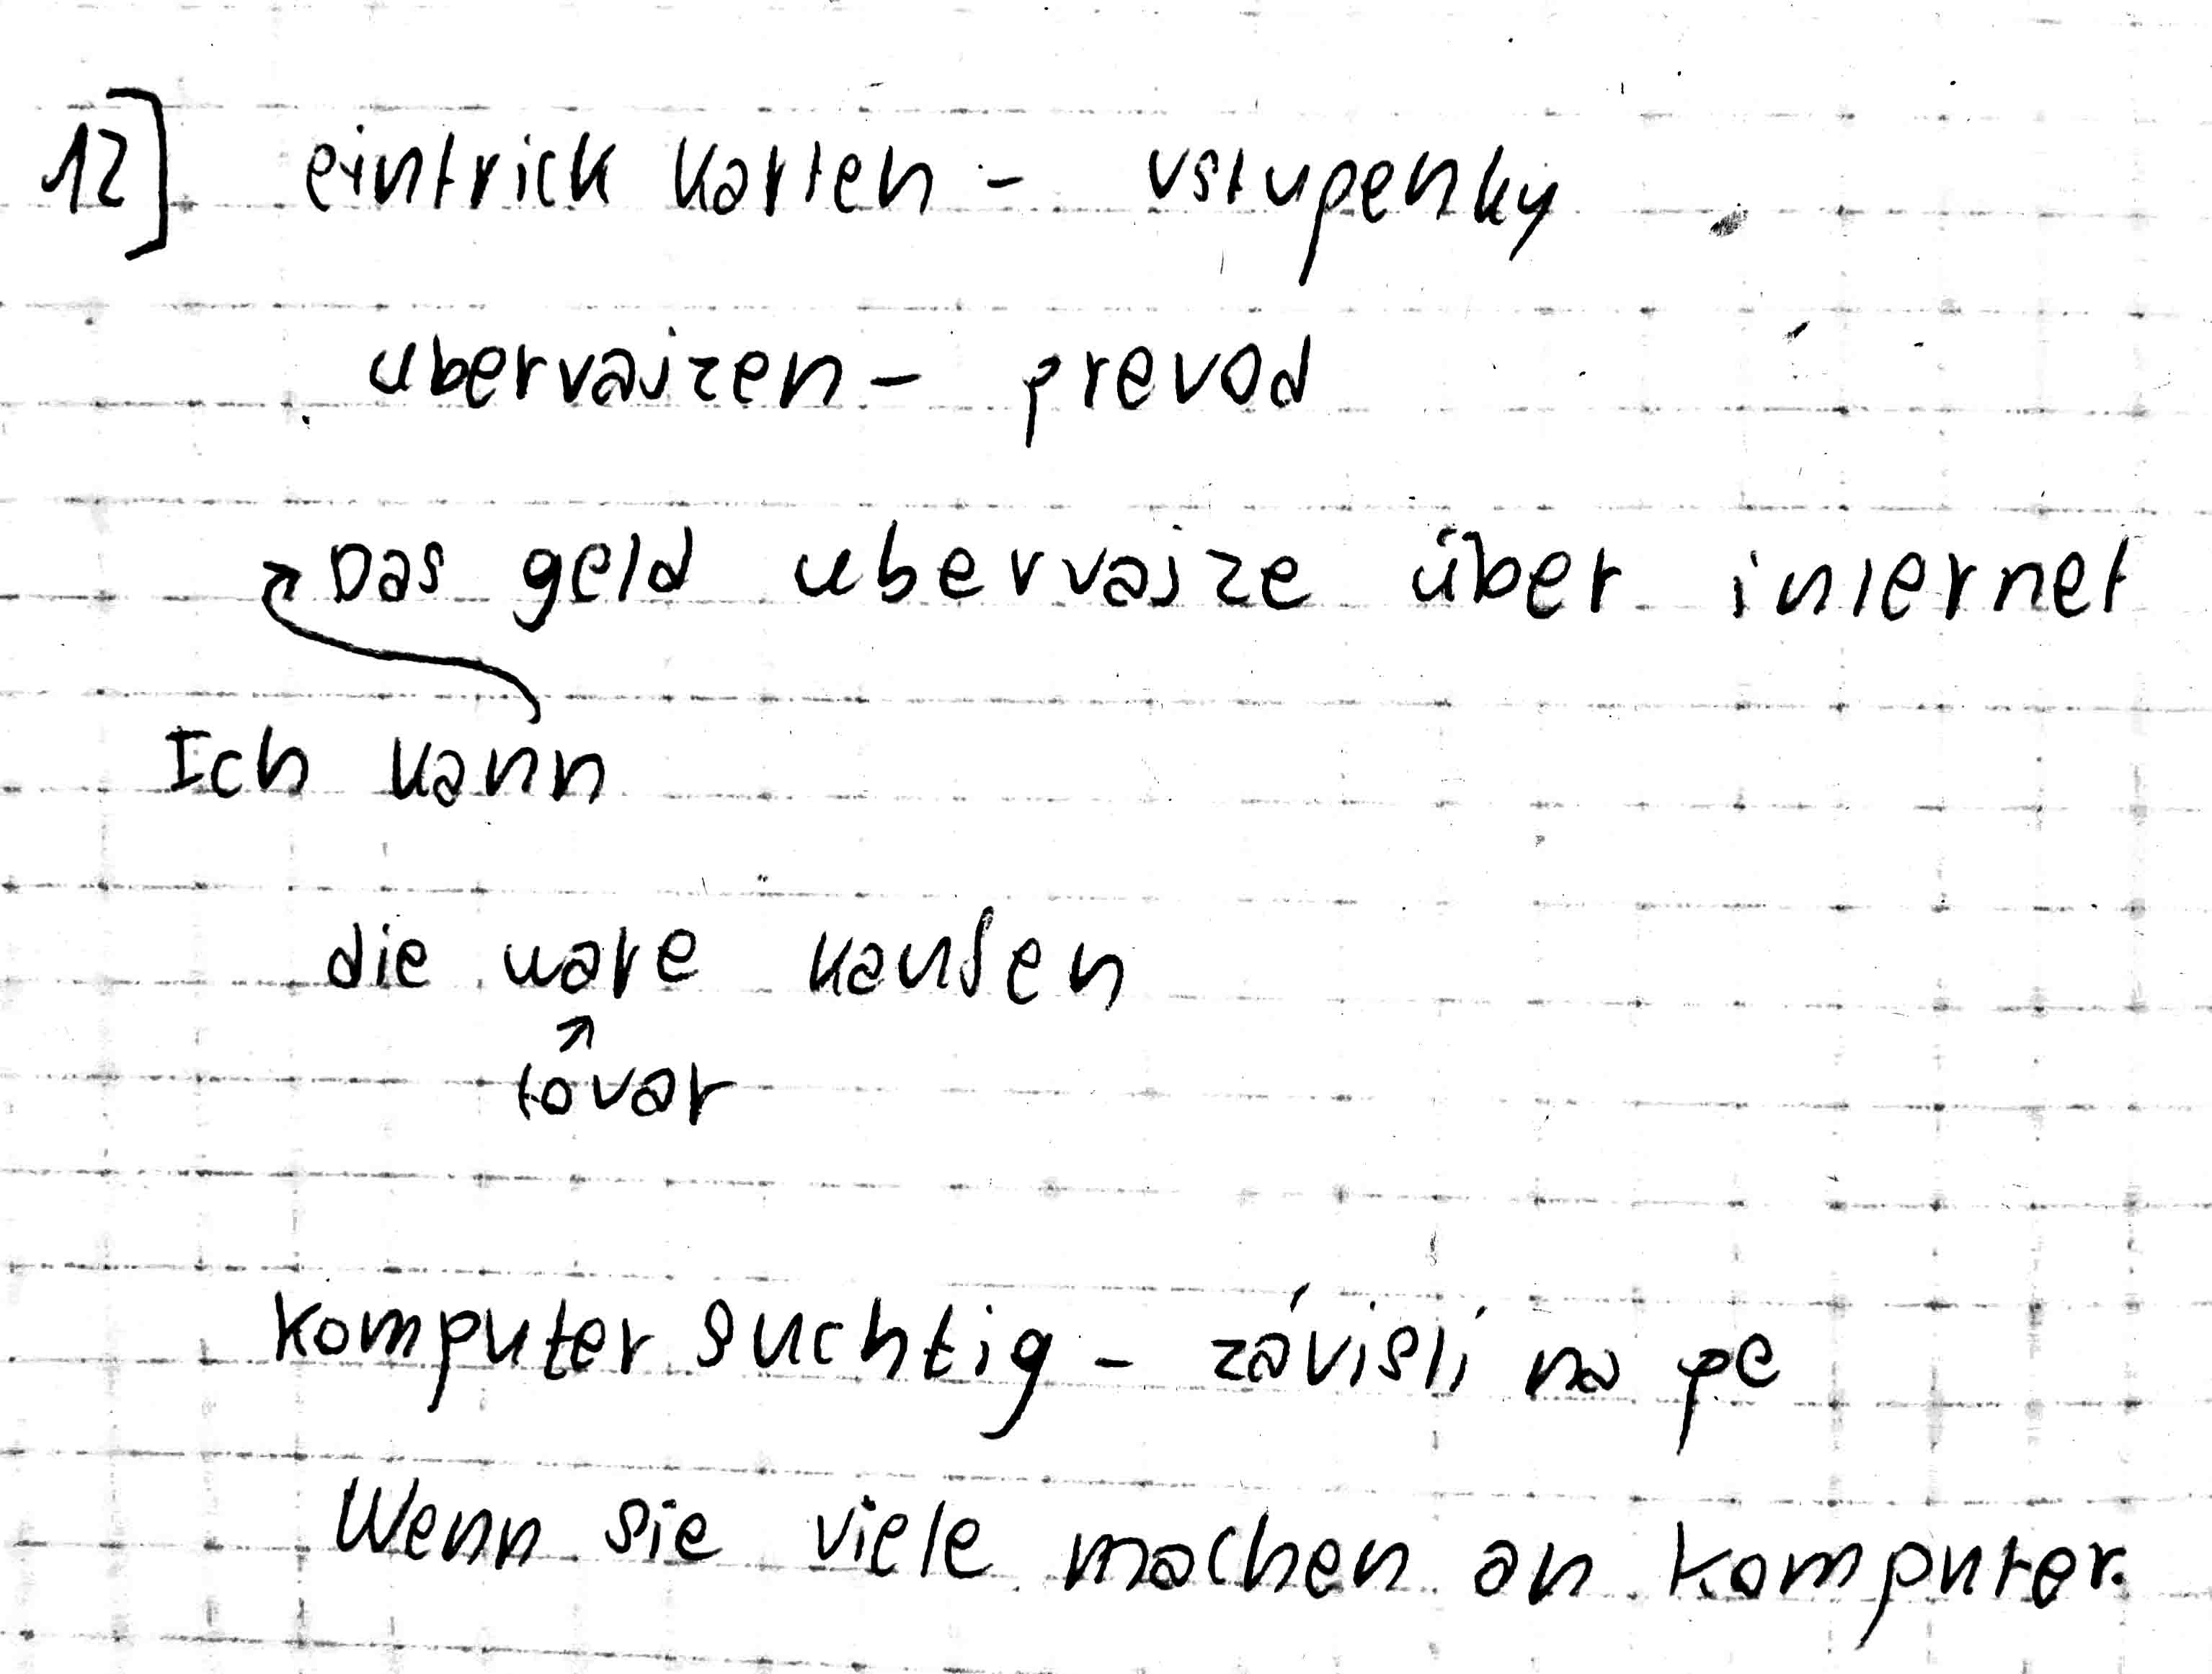 12] eintrick karten - vstupenky
ubervajzen - prevod
Das geld ubervajze über internet
Ich kann
die ware kaufen
tovar
komputer suchtig - závislí na pc
Wenn sie viele machen an komputer.